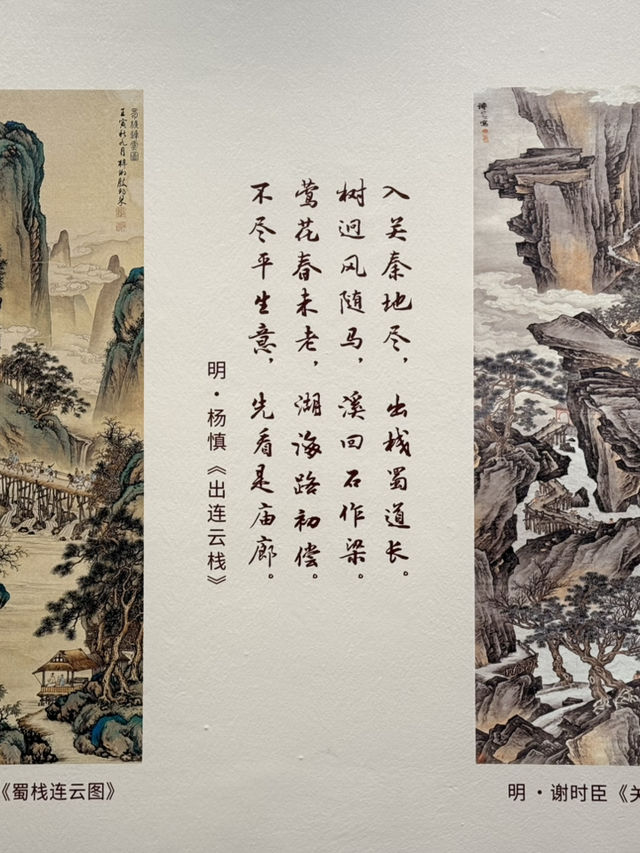 入关秦地尽，出栈蜀道长。
树迥风随马，溪回石作梁。
莺花春未老，湖海路初偿。
不尽平生意，先看是庙廊。
明·杨慎《出连云栈》
蜀栈连云图
《蜀栈连云图》
明·谢时臣《关